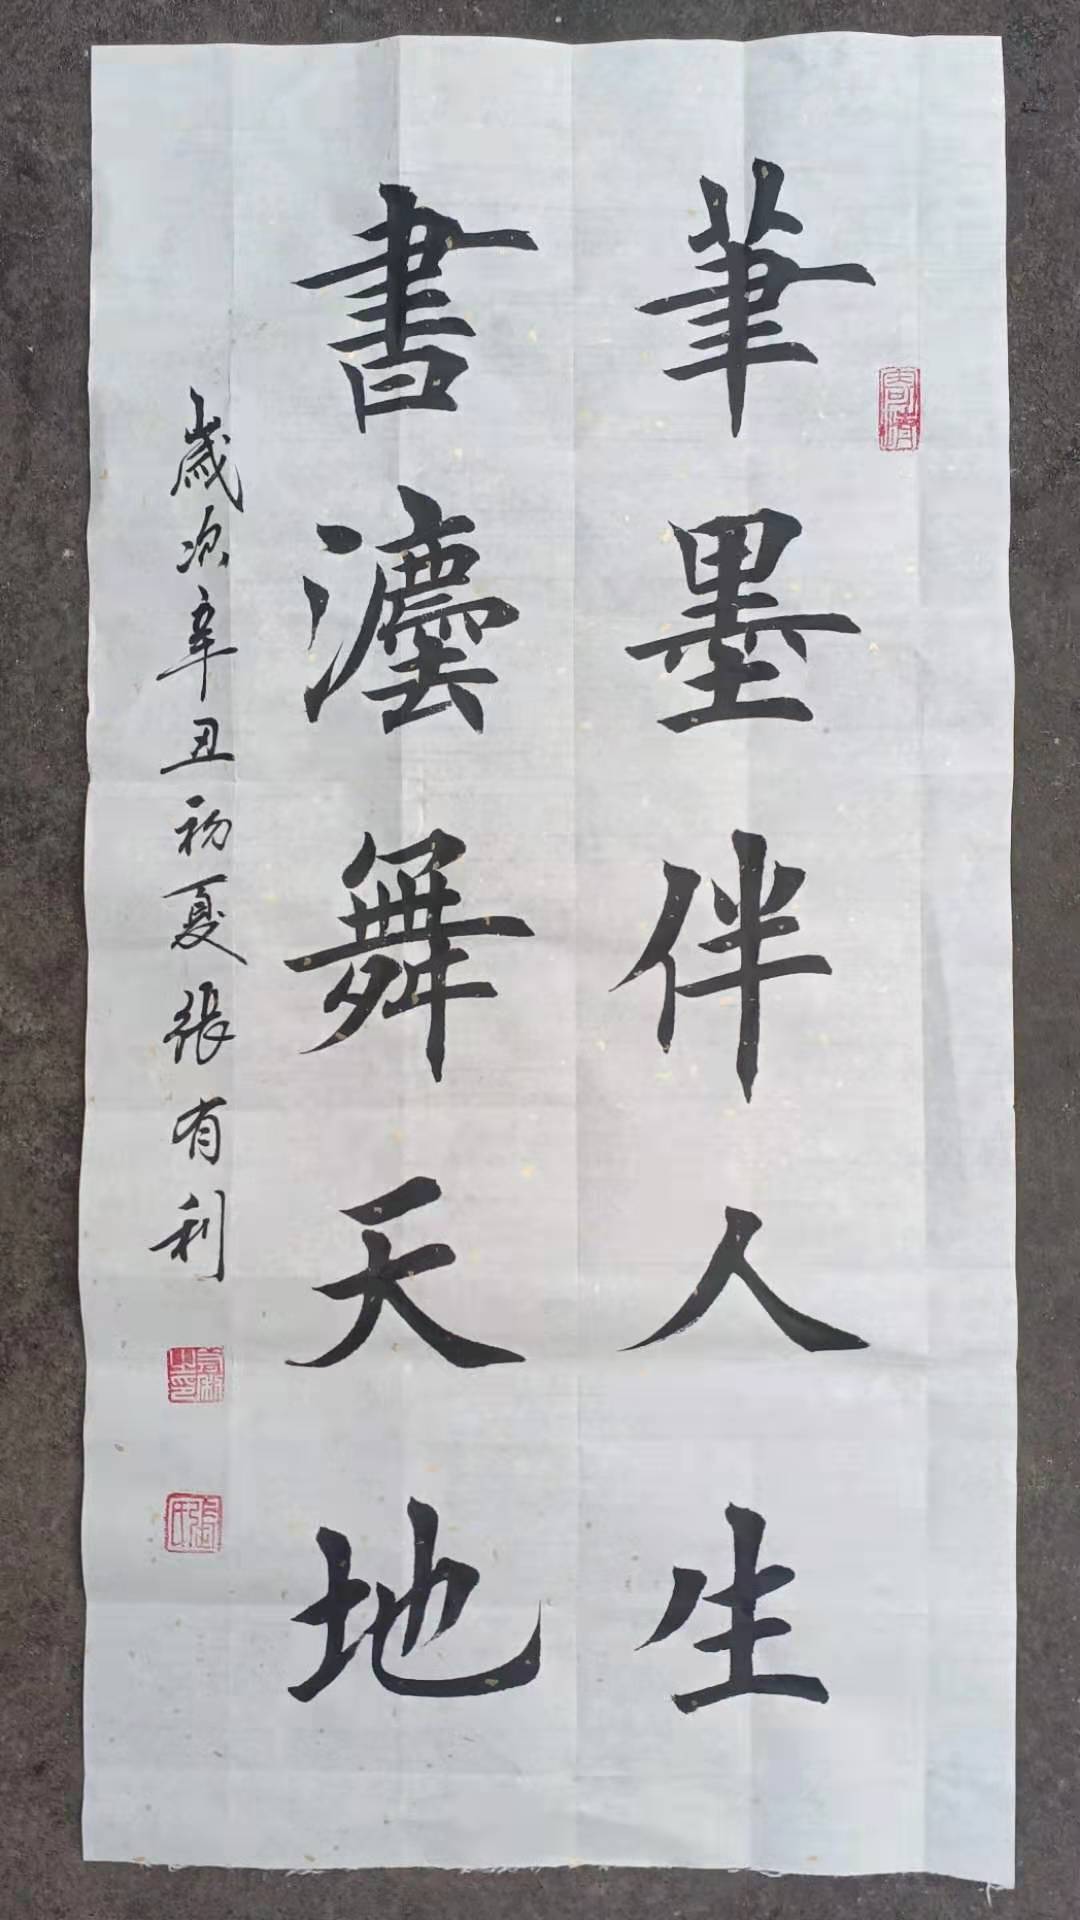 筆墨伴人生
書灋舞天地
歲次辛丑初夏張有利